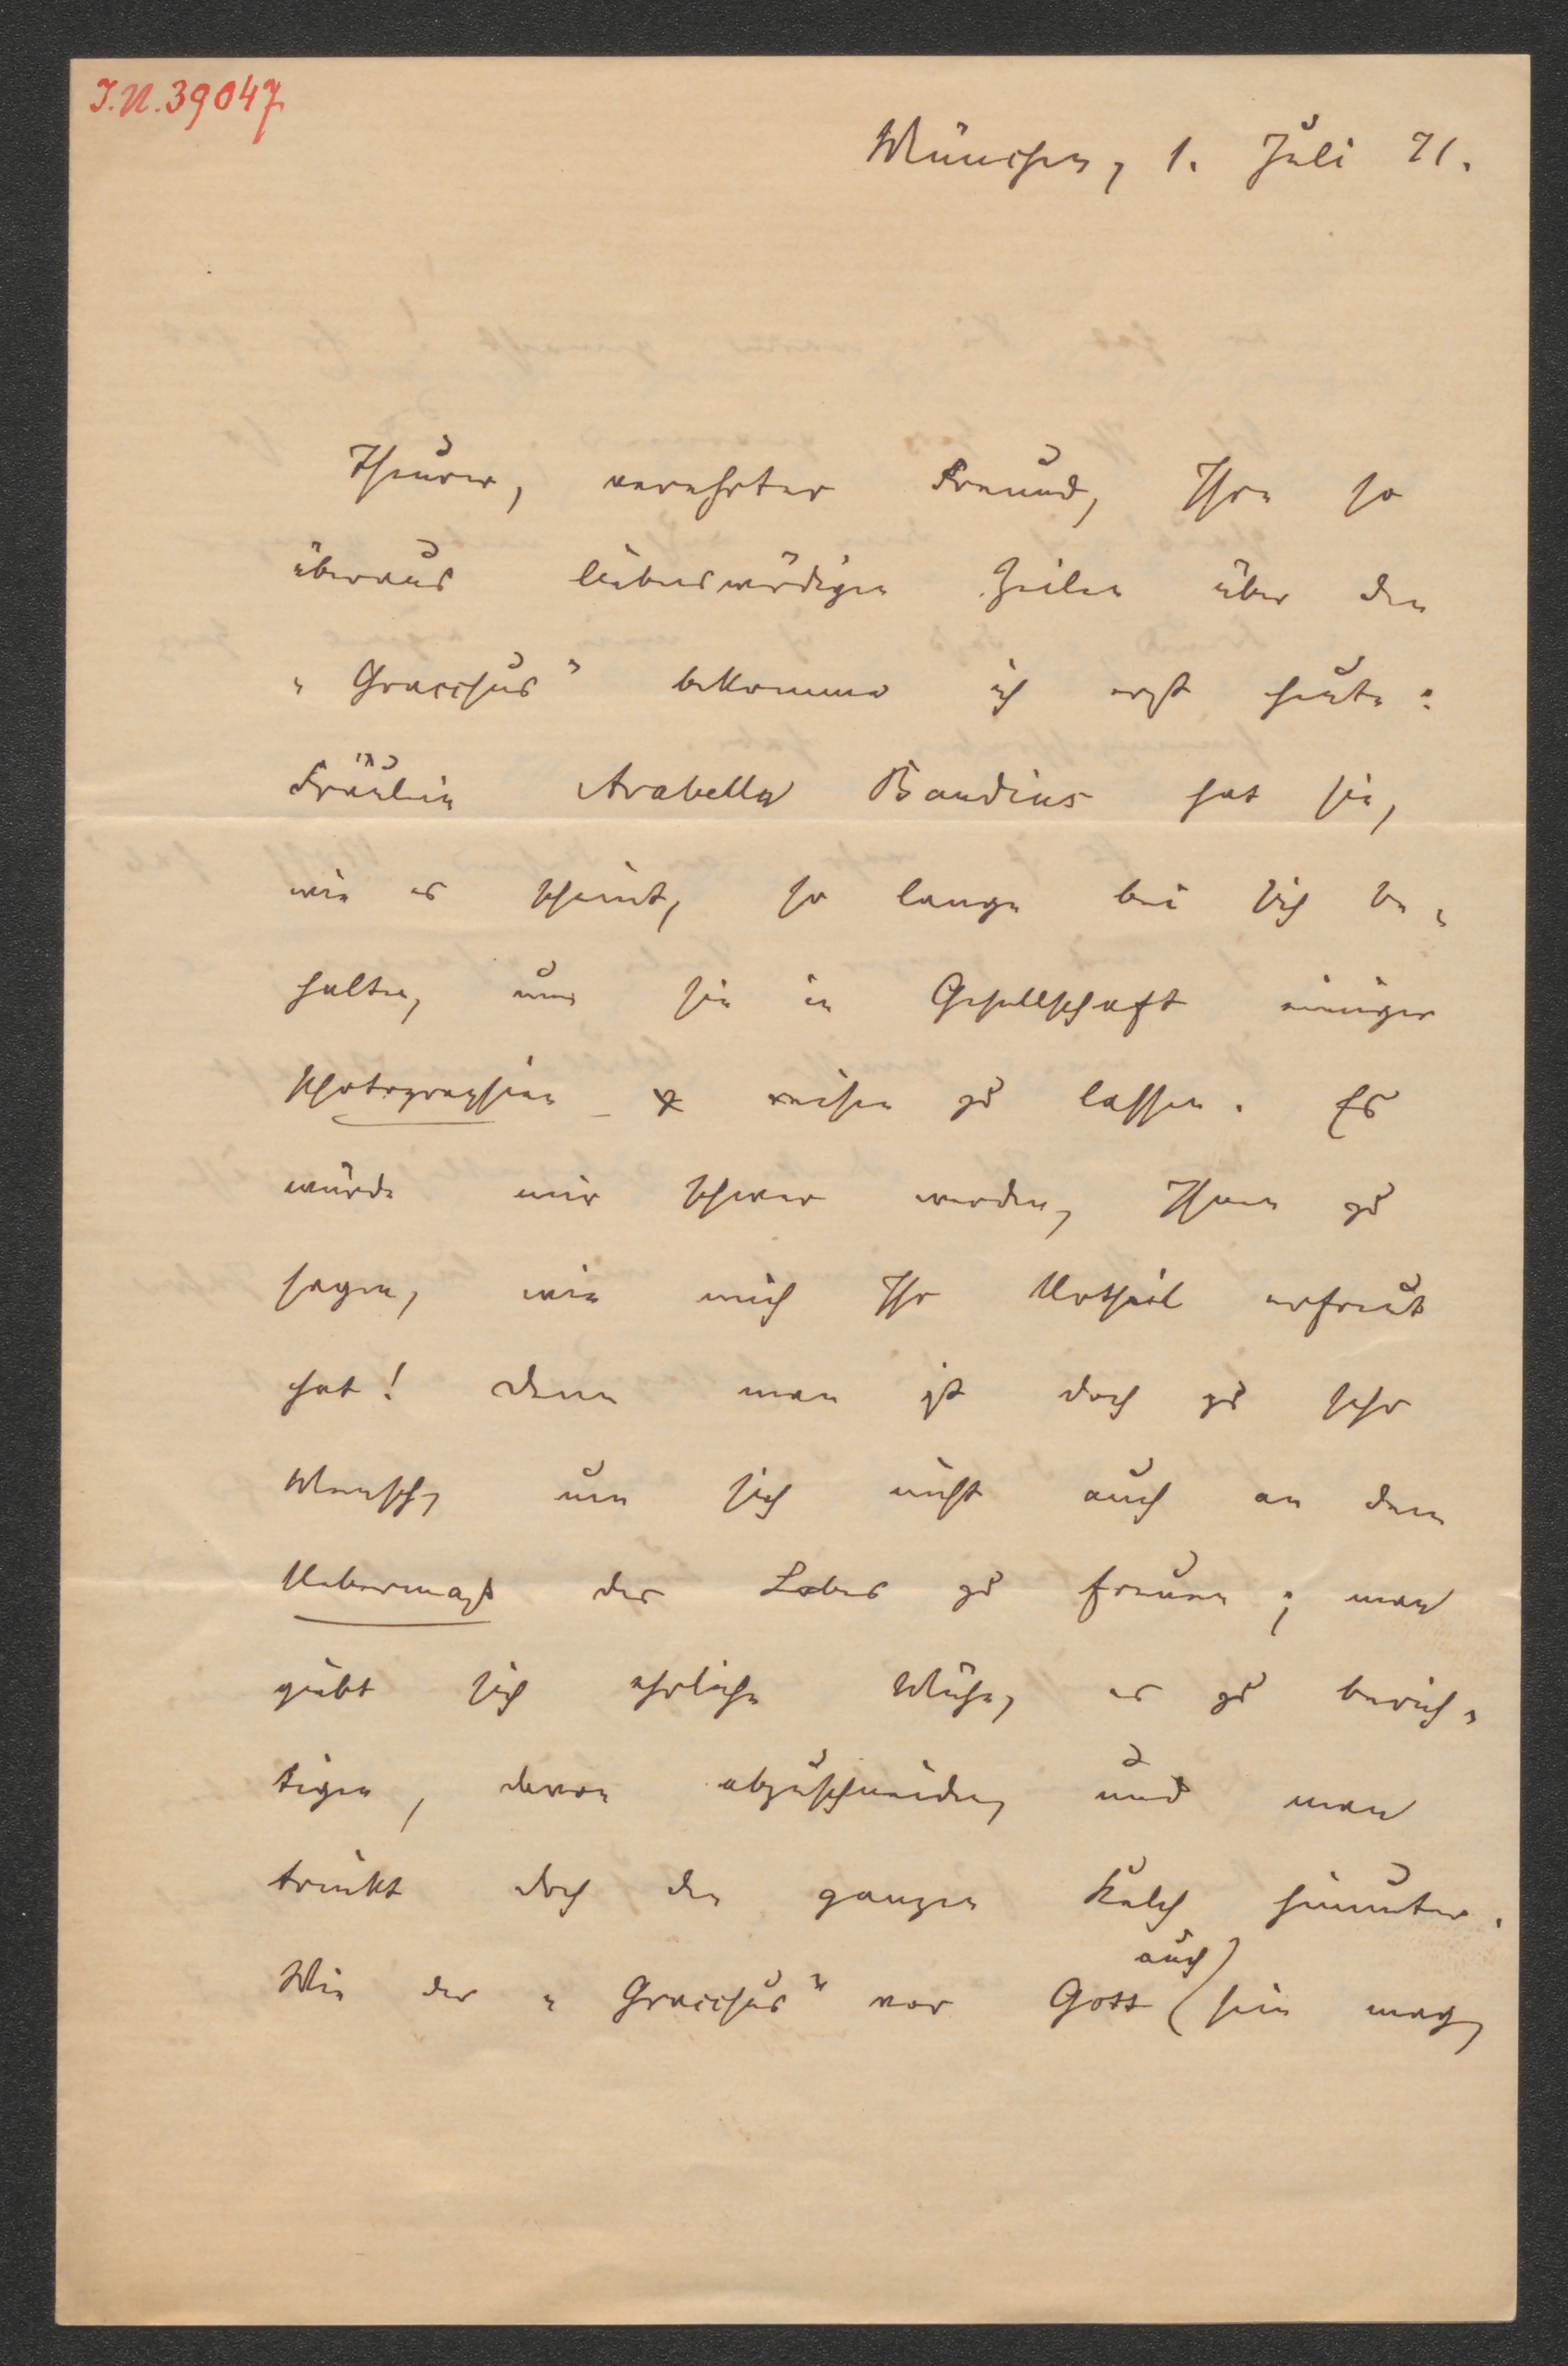 I.N. 39047
München, 1. Juli 71.
Theurer, verehrter Freund, Ihre so
überaus liebenswürdigen Zeilen über den
„Gracchus" bekomme ich erst heute:
Fräulein Arabella Baudius hat sie,
wie es scheint, so lange bei sich be-
halten, um sie in Gesellschaft einiger
Photographien reisen zu lassen. Es
würde mir schwer werden, Ihnen zu
sagen, wie mich Ihr Urtheil erfreut
hat! Denn man ist doch zu sehr
Mensch, um sich nicht auch an dem
Uebermaß des Lobes zu freuen; man
giebt sich ehrliche Mühe, es zu berich-
tigen, davon abzuschneiden, und man
trinkt doch den ganzen Kelch hinunter.
Wie der „Gracchus" vor Gott auch sein mag,